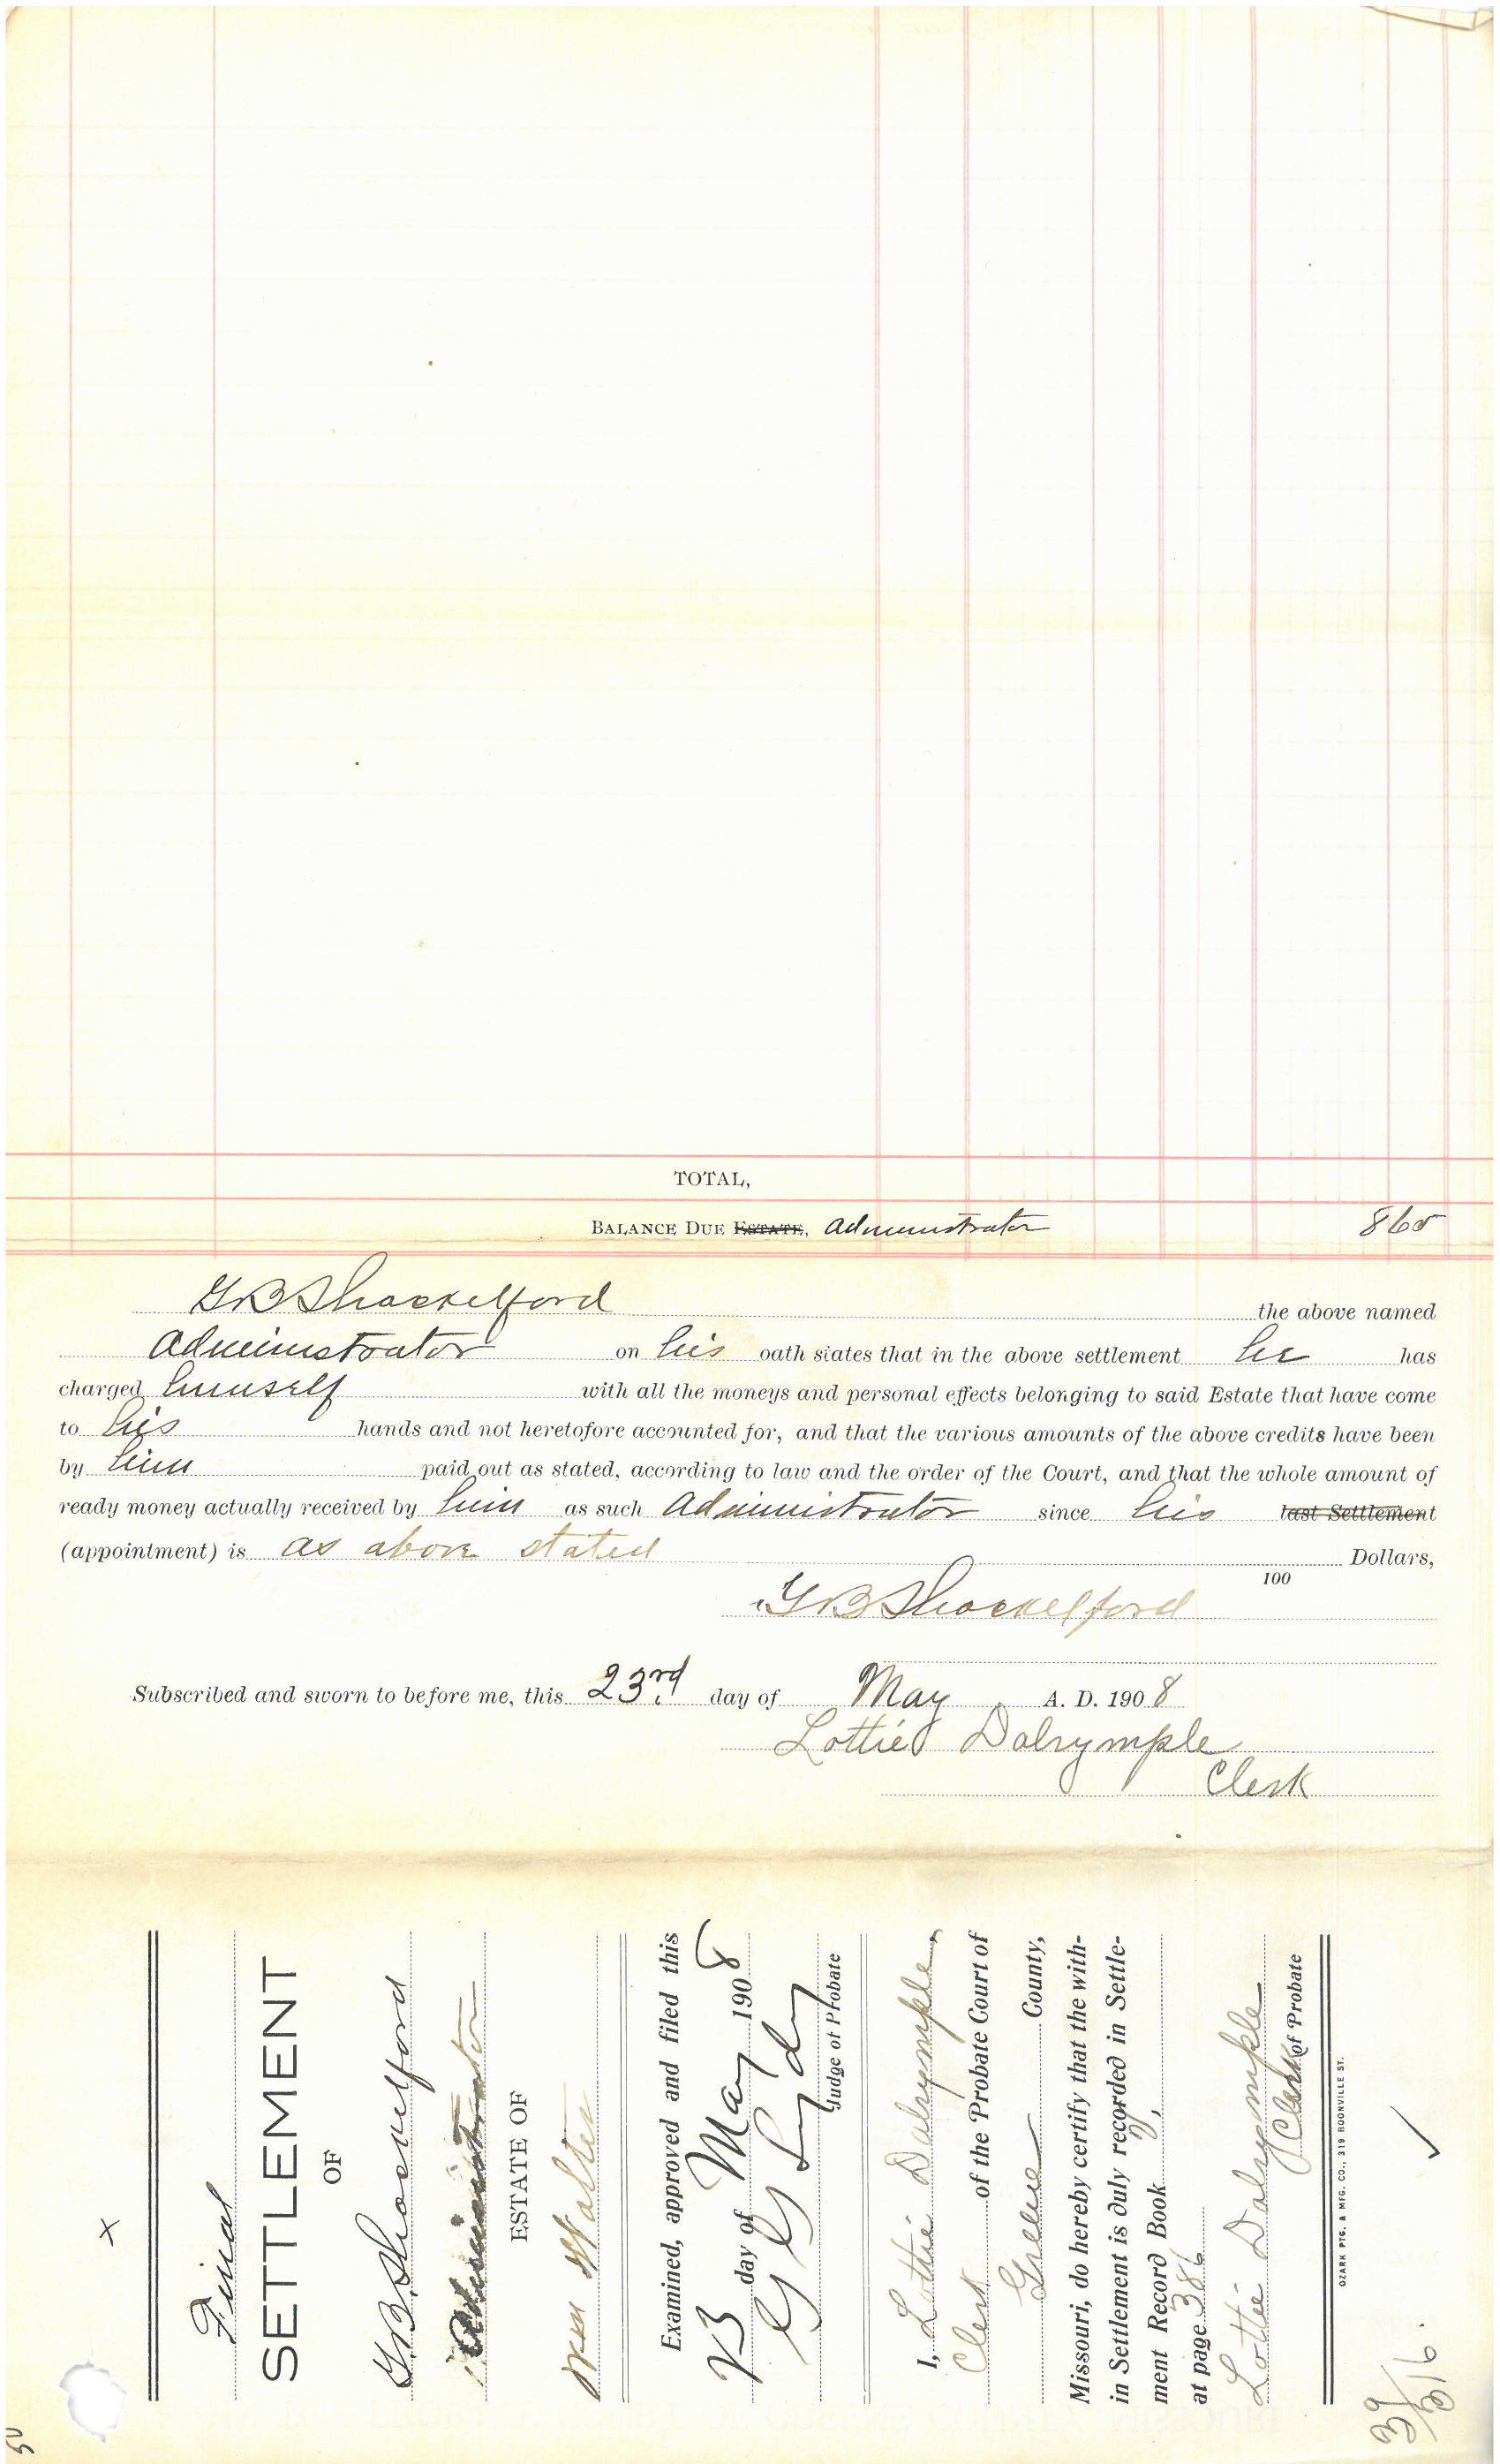 TOTAL,
BALANCE DUE ESTATE, Administrator 865
G B Shackelford the above named
Administrator on his oath states that in the above settlement he has
charged himself with all the moneys and personal effects belonging to said Estate that have come
to his hands and not heretofore accounted for, and that the various amounts of the above credits have been
by him paid out as stated, according to law and the order of the Court, and that the whole amount of
ready money actually received by him as such Administrator since his last Settlement
(appointment) is as above stated Dollars,
100
G B Shackelford
Subscribed and sworn to before me, this 23rd day of May A. D. 1908
Lottie Dalrymple
Clerk
x
Final
SETTLEMENT
OF
G.B. Shackelford
Administrator
ESTATE OF
Wm Walter
Examined, approved and filed this
23 day of May 1908
Judge of Probate
I, Lottie Dalrymple,
Clerk of the Probate Court of
Greene County,
Missouri, do hereby certify that the with-
in Settlement is duly recorded in Settle-
ment Record Book
at page 386
Lottie Dalrymple
Clerk of Probate
OZARK PTG. & MFG. CO., 319 BOONVILLE ST.
39
316.